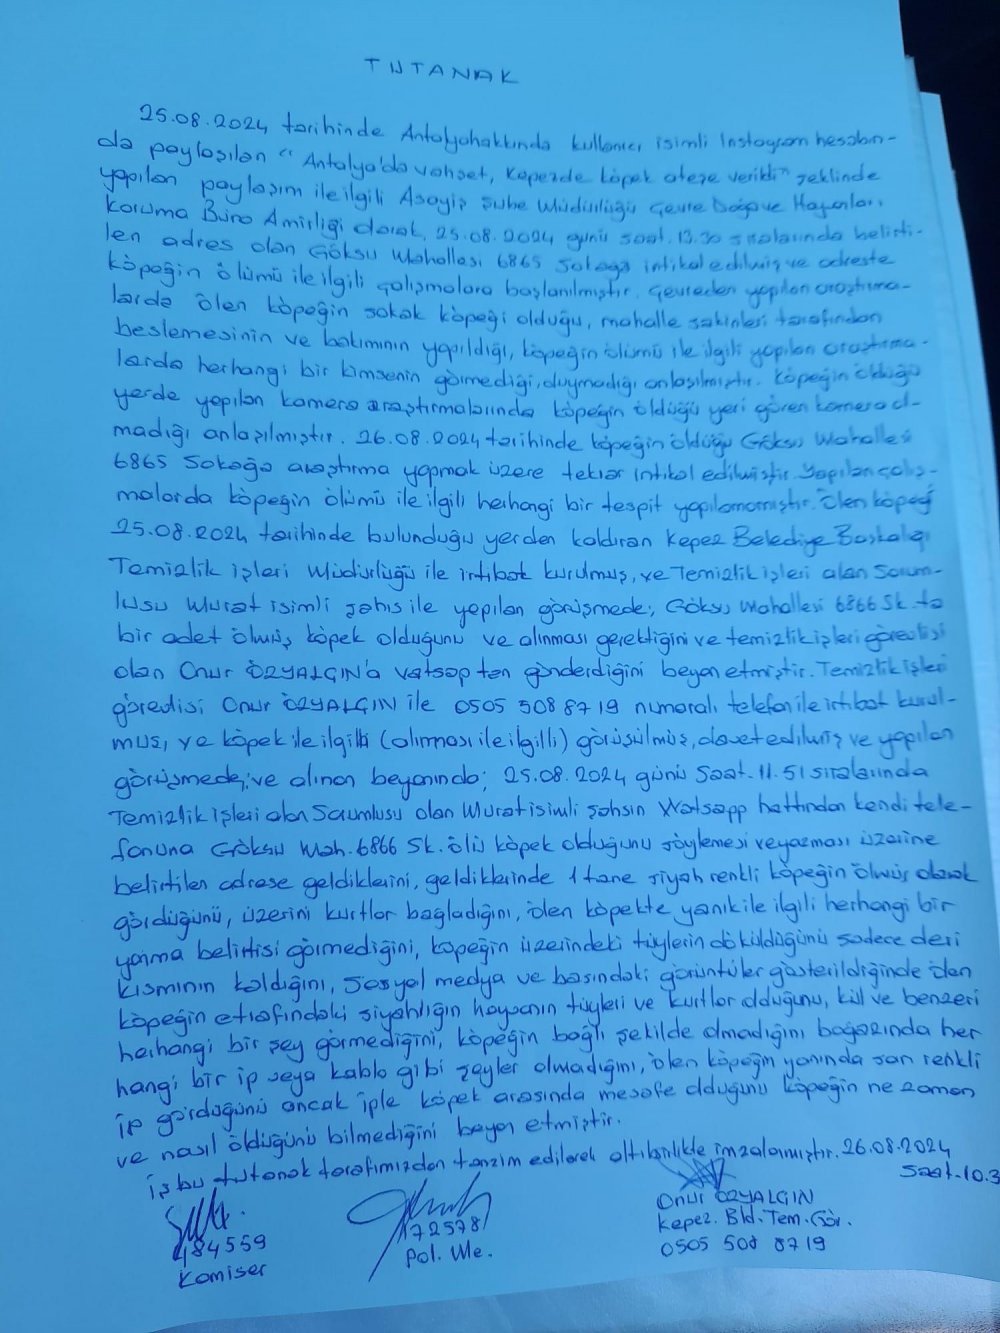 TUTANAK
25.08.2024 tarihinde Antalyahakkında kullanıcı isimli Instagram hesabın-
da paylaşılan "Antalya'da vahşet, Kepezde köpek ateşe verildi" şeklinde
yapılan paylaşım ile ilgili Asayiş Şube Müdürlüğü Çevre Doğa ve Hayvanları
Koruma Büro Amirliği olarak, 25.08.2024 günü saat. 13.30 sıralarında belirti-
len adres olan Göksu Mahallesi 6865 Sokağa intikal edilmiş ve adreste
köpeğin ölümü ile ilgili çalışmalara başlanılmıştır. Çevreden yapılan araştırma-
larda ölen köpeğin sokak köpeği olduğu, mahalle sakinleri tarafından
beslemesinin ve bakımının yapıldığı, köpeğin ölümü ile ilgili yapılan araştırma-
larda herhangi bir kimsenin görmediği, duymadığı anlaşılmıştır. Köpeğin öldüğü
yerde yapılan kamera araştırmalarında köpeğin öldüğü yeri gören kamera ol-
madığı anlaşılmıştır. 26.08.2024 tarihinde köpeğin öldüğü Göksu Mahallesi
6865 Sokağa araştırma yapmak üzere tekrar intikal edilmiştir. Yapılan çalış-
malarda köpeğin ölümü ile ilgili herhangi bir tespit yapılamamıştır. Ölen köpeği
25.08.2024 tarihinde bulunduğu yerden kaldıran Kepez Belediye Başkalığı
Temizlik işleri Müdürlüğü ile irtibat kurulmuş, ve Temizlik işleri alan Sorum-
lusu Murat isimli şahıs ile yapılan görüşmede; Göksu Mahallesi 6866 Sk. ta
bir adet ölmüş köpek olduğunu ve alınması gerektiğini ve temizlik işleri görevlisi
olan Onur ÖZYALGIN'a vatsap ten gönderdiğini beyan etmiştir. Temizlik işleri
görevlisi Onur ÖZYALGIN ile 0505 508 8719 numaralı telefon ile irtibat kurul-
muş, ve köpek ile ilgili (alınması ile ilgilli) görüşülmüş, davet edilmiş ve yapılan
görüşmede; ve alınan beyanında; 25.08.2024 günü saat. 11.51 sıralarında
Temizlik işleri alan Sorumlusu olan Murat isimli şahsın Watsapp hattından kendi tele-
fonuna Göksu Mah. 6866 Sk. ölü köpek olduğunu söylemesi ve yazması üzerine
belirtilen adrese geldiklerini, geldiklerinde 1 tane siyah renkli köpeğin ölmüş olarak
gördüğünü, üzerini kurtlar bağladığını, ölen köpekte yanık ile ilgili herhangi bir
yanma belirtisi görmediğini, köpeğin üzerindeki tüylerin döküldüğünü sadece deri
kısmının kaldığını, Sosyal medya ve basındaki görüntüler gösterildiğinde ölen
köpeğin etrafındaki siyahlığın hayvanın tüyleri ve kurtlar olduğunu, kül ve benzeri
herhangi bir şey görmediğini, köpeğin bağlı şekilde olmadığını boğazında her
hangi bir ip veya kablo gibi şeyler olmadığını, ölen köpeğin yanında sarı renkli
ip gördüğünü ancak iple köpek arasında mesafe olduğunu köpeğin ne zaman
ve nasıl öldüğünü bilmediğini beyan etmiştir.
iş bu tutanak tarafımızdan tanzim edilerek altı birlikte imzalanmıştır. 26.08.2024
Saat. 10.3
484559
Komiser
172578
Pol. Me.
Onur ÖZYALGIN
Kepez. Bld. Tem. Gör.
0505 508 8719